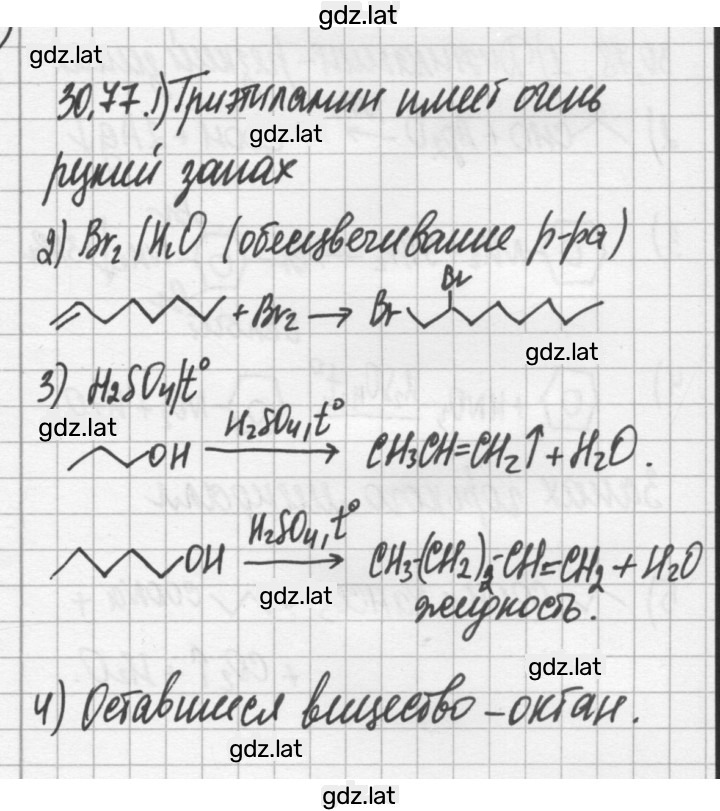 gdz.lat
gdz.lat
30.77. 1) Триэтиламин имеет очень
gdz.lat
резкий запах
2) Br2 / H2O (обесцвечивание р-ра)
Br
+ Br2 → Br
gdz.lat
3) H2SO4/t°
gdz.lat
H2SO4, t°
OH → CH3CH=CH2↑ + H2O.
H2SO4, t°
OH → CH3-(CH2)2-CH=CH2 + H2O
gdz.lat
жидкость.
gdz.lat
4) Оставшиеся вещество – октан.
gdz.lat
gdz.lat